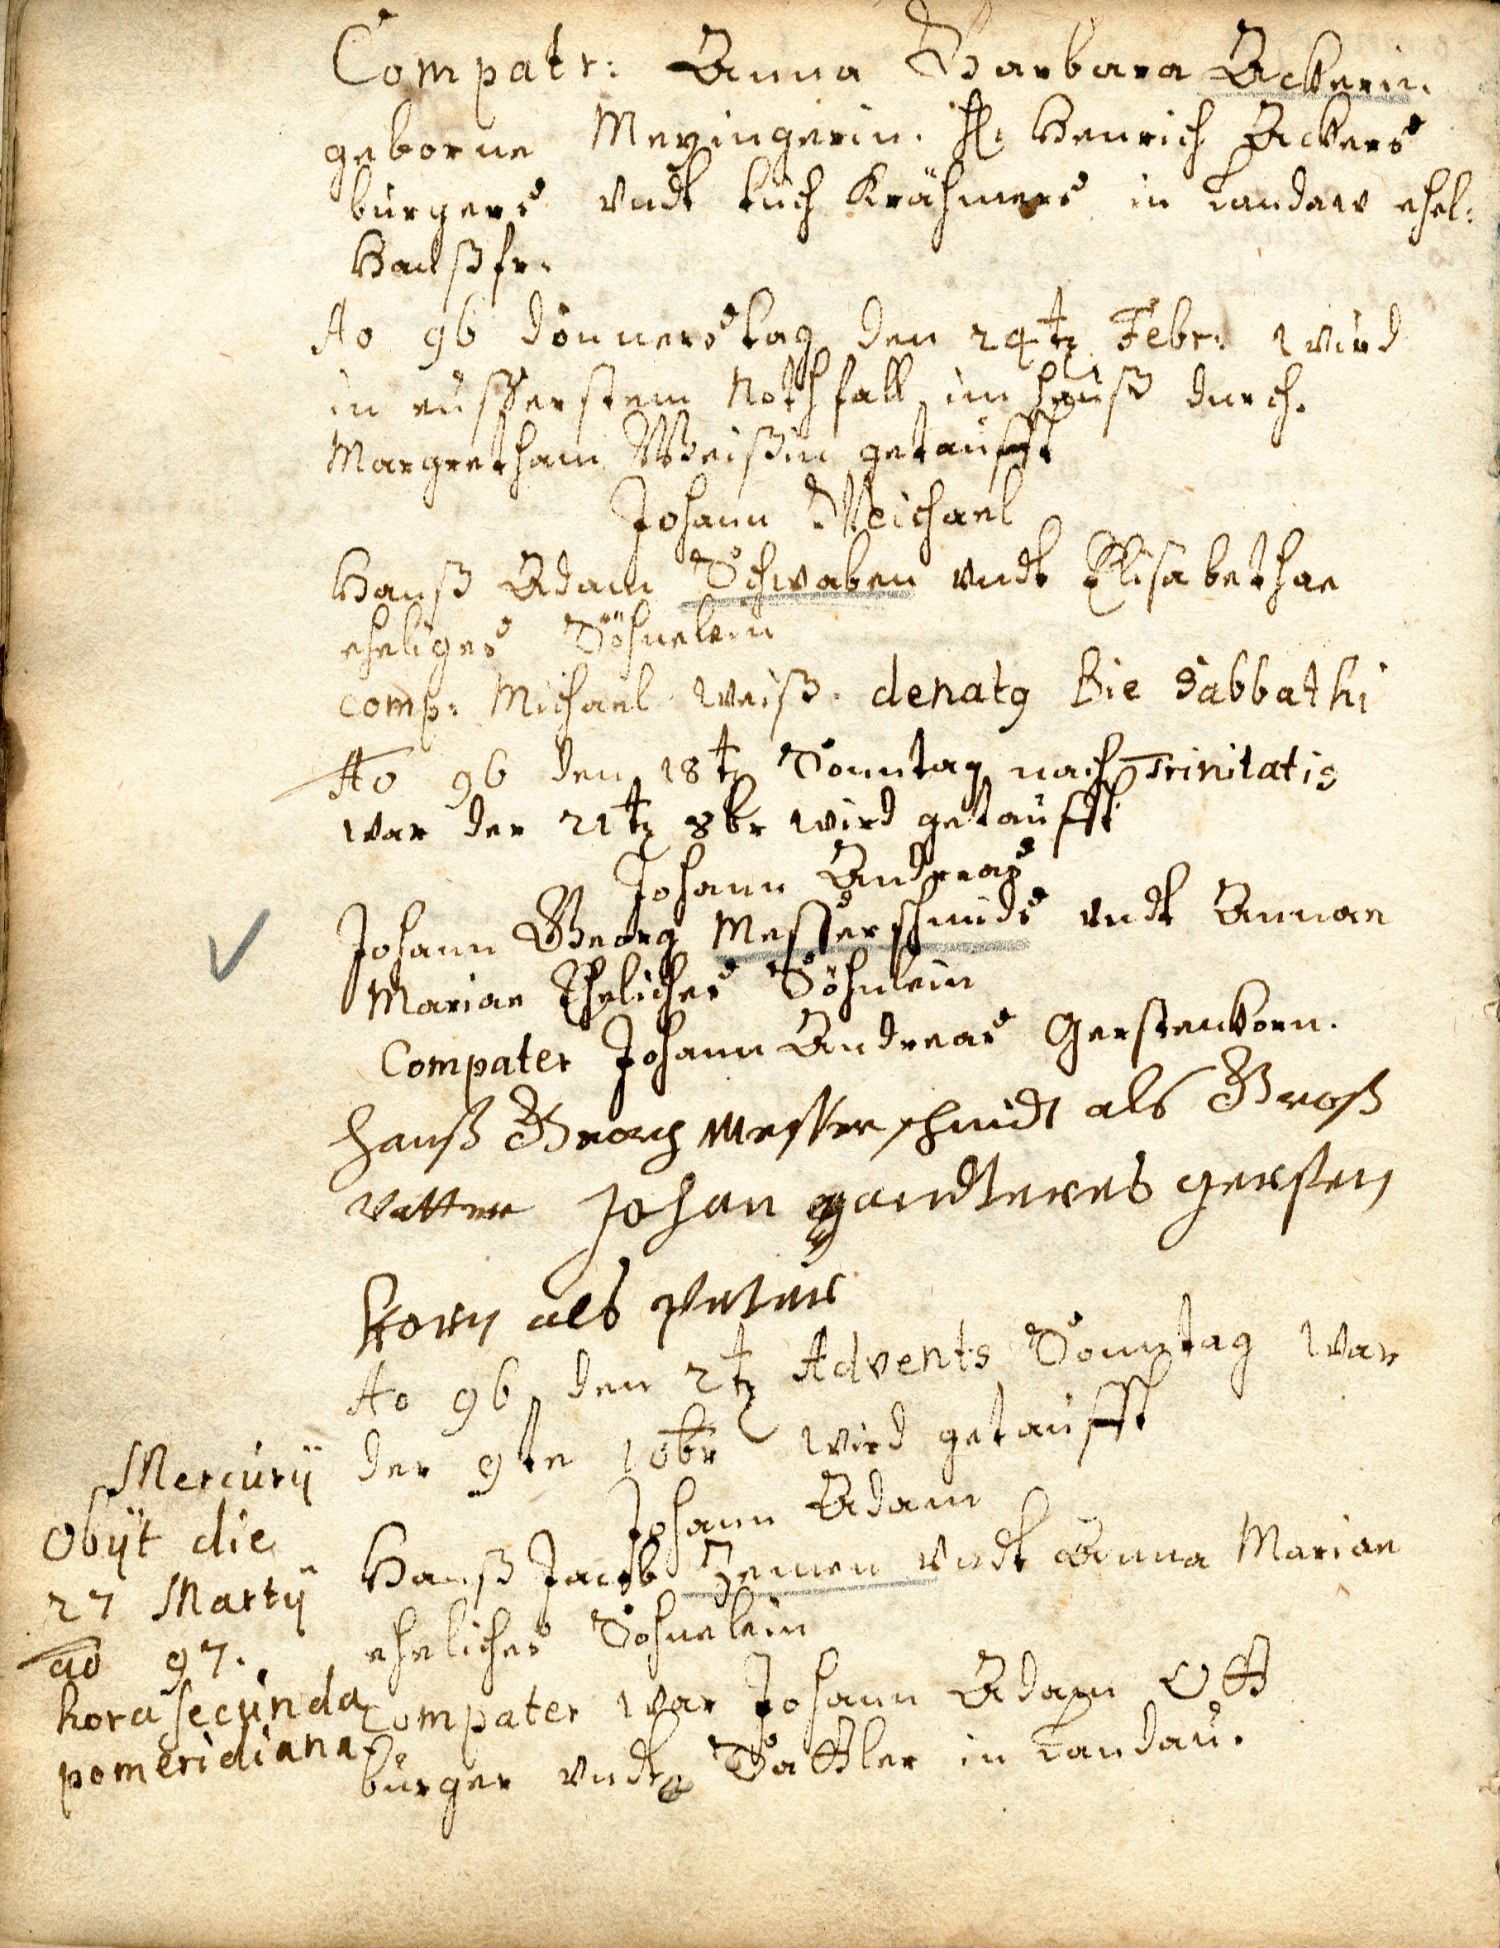 Compatr: Anna Barbara Ackerin.
geborne Meyingerin. H: Henrich Ackers
burgers undt tuch Krähmers in Landaw ehel:
Haußfr.
Ao 96 donnerstag den 24t Febr: wird
in eusserstem Nothfall im hauß durch
Margretham Weißin getaufft
Johann Michael
Hanß Adam Schwaben undt Elisabethae
eheliges Söhnelein
comp: Michael Weiß. denatg Die Sabbathi
Ao 96 den 18t Sonntag nach Trinitatis
war der 21t 8br wird getaufft
Johann Andreas
Johann Georg Messerschmids undt Annae
Mariae Ehelicher Söhnlein
Compater Johann Andreas Gerstenkorn.
Hanß Georg Messerschmidt als Groß
vatter Johan andteres gersten
korn als Peter
Ao 96 den 2t Advents Sonntag war
der 9te 10br wird getaufft
Johann Adam
Hanß Jacob Zemen undt Anna Mariae
ehelicher Söhnelein
Compater war Johann Adam Ott
burger undt Sattler in Landau.
Mercurij
Obijt die
27 Martij
ao 97.
hora secunda
pomeridiana